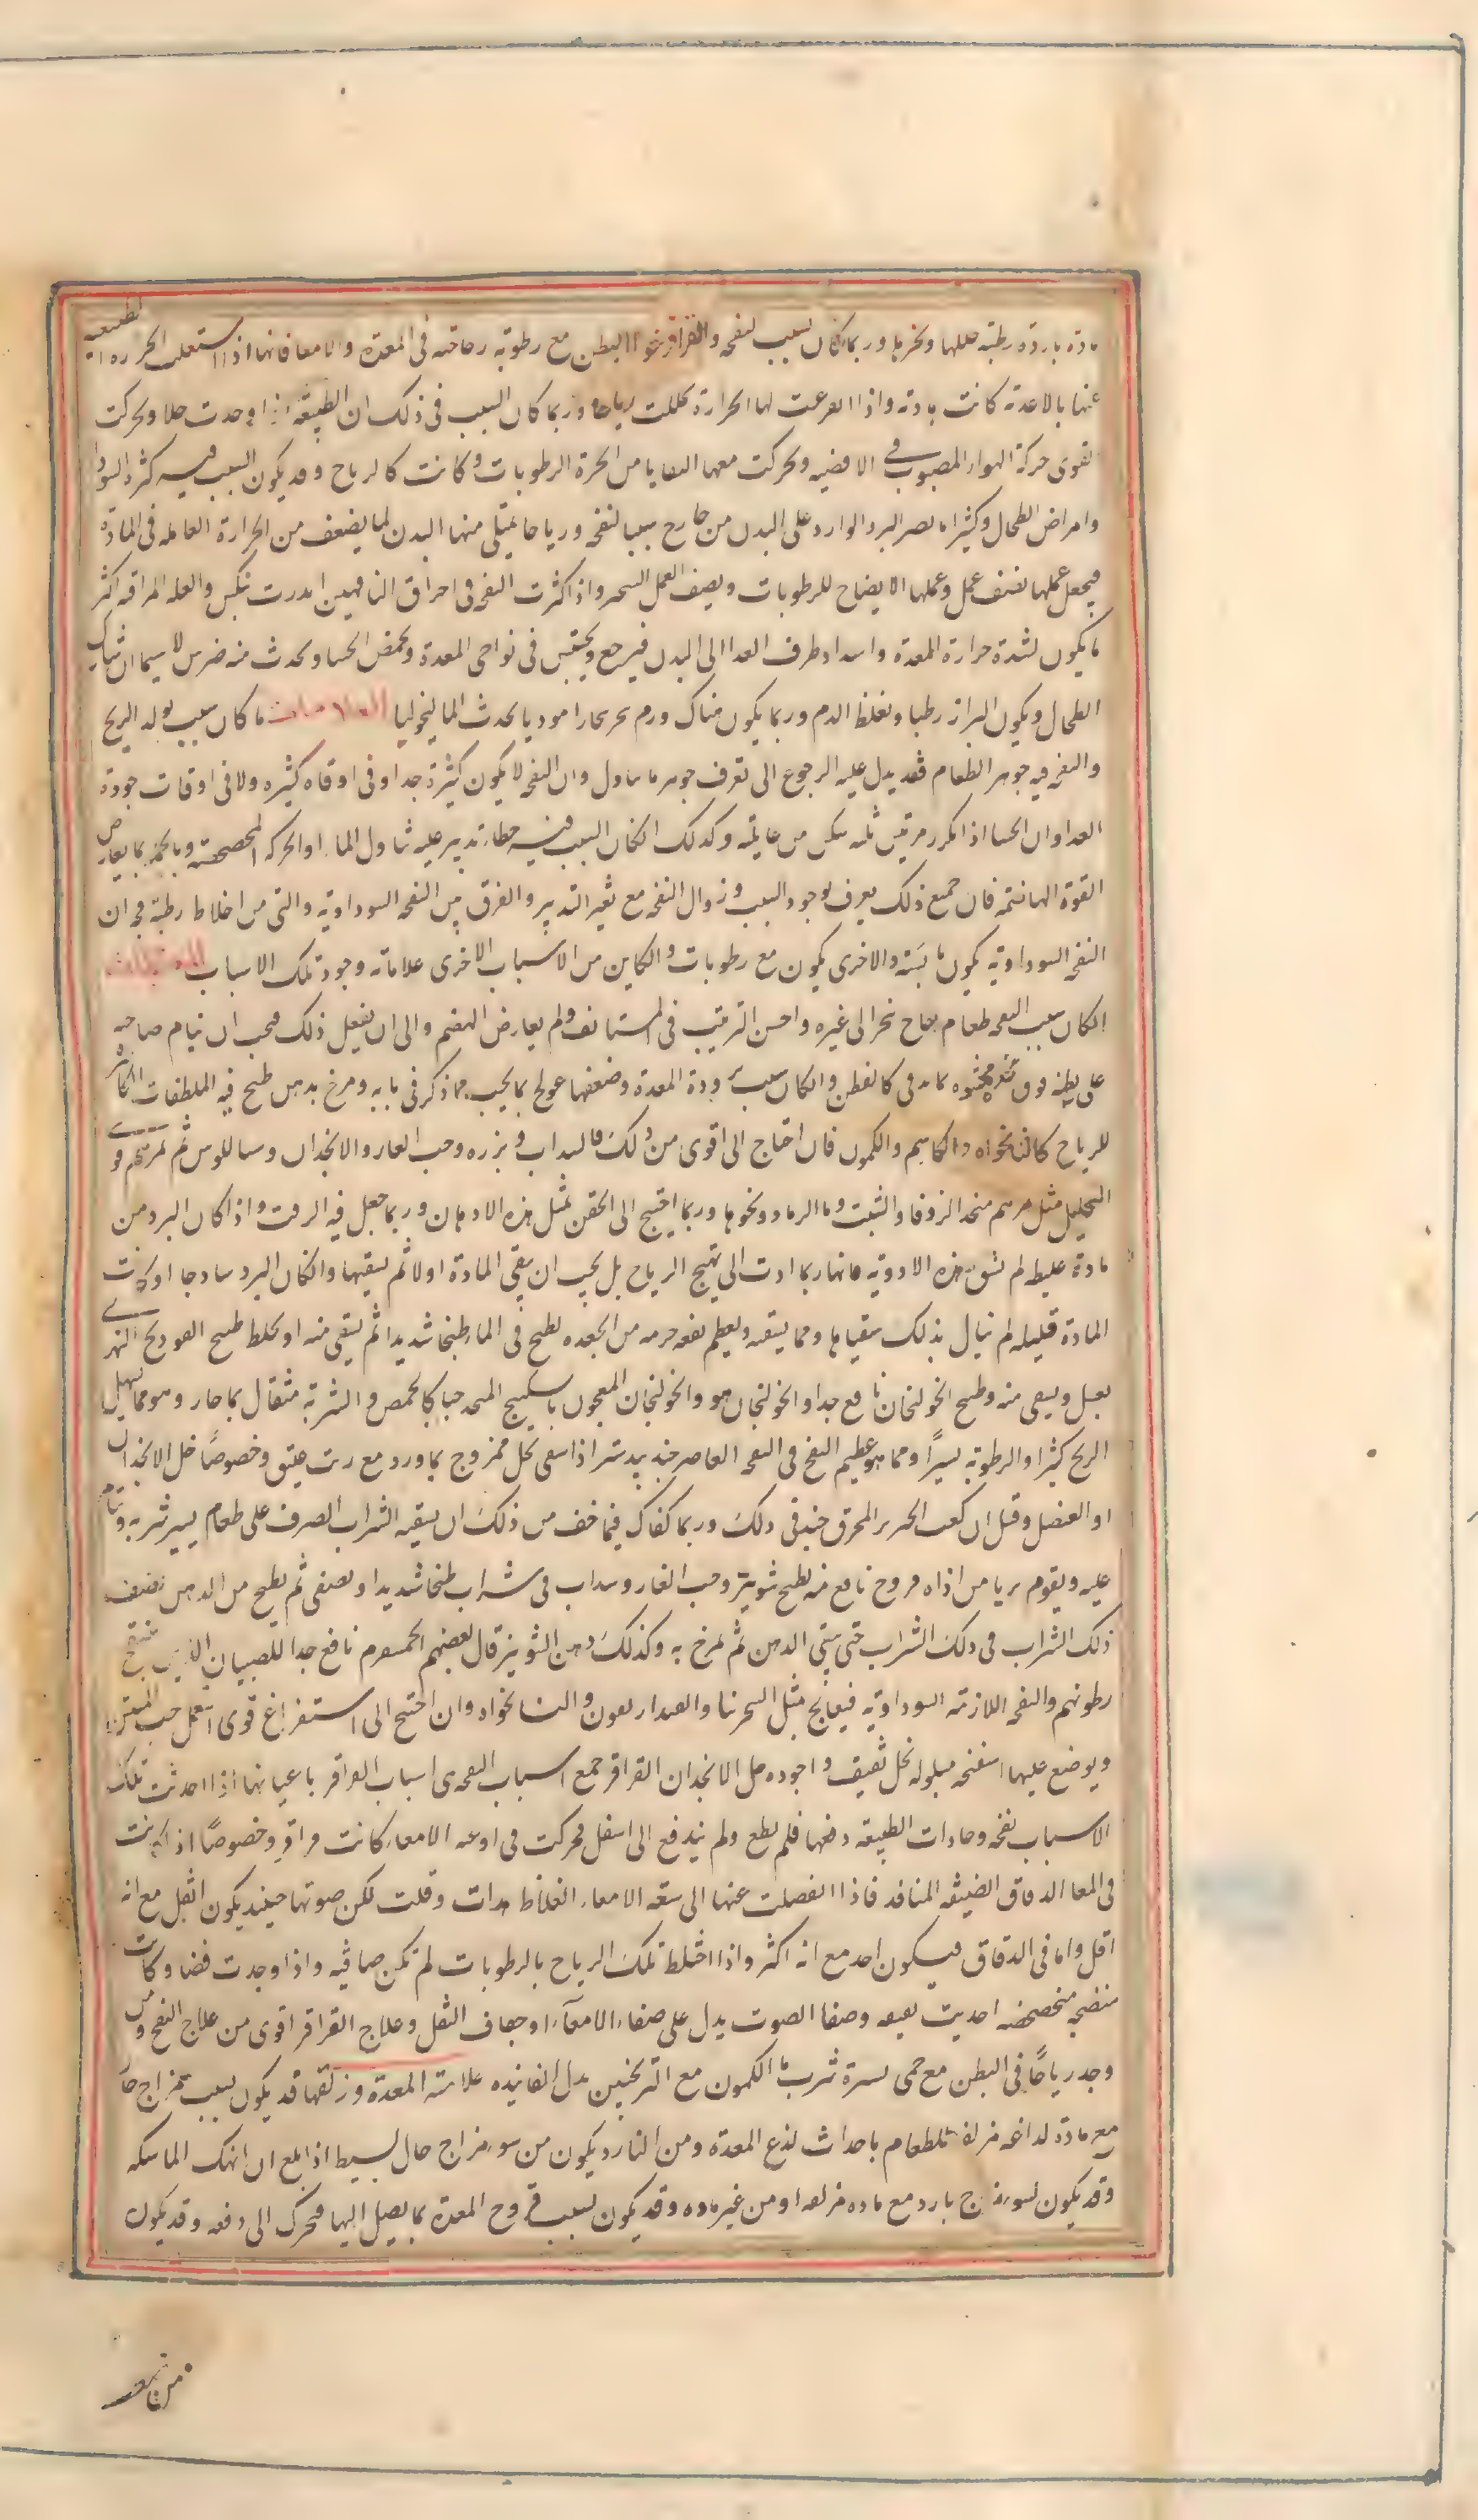 مادة باردة رطبة حللها وبخرها وربما كان سبب النفخه والقراقر خوا البطن مع رطوبة زجاجية فى المعدة والامعا فانها اذا اشتغلت الحرارة الطبيعيه
عنها بالاغدية كانت هادية واذا تفرغت لها الحرارة تحللت رياحا وربما كان السبب فى ذلك ان الطبيعة اذا وجدت خلا وتحركت
القوى حركة الهواء المصبوب فى الافضيه وتحركت معها البقايا من ابخرة الرطوبات وكانت كالرياح وقد يكون السبب فيه كثرة السودا
وامراض الطحال وكثيرا ما يصير البرد الوارد على البدن من خارج سببا لنفخه ورياحا يمتلى منها البدن لما يضعف من الحرارة العامله فى المادة
فيجعل عملها نصف عمل وعملها الايضاح للرطوبات ونصف العمل التبخير واذا كثرت النفخه فى احراق الناقهين انذرت بنكس والعله المراقيه اكثر
ما يكون لشدة حرارة المعدة وانسداد طرق الغدا الى البدن فيرجع ويحتبس فى نواحى المعدة ويحمض الجشا ويحدث منه ضرس لا سيما ان شارك
الطحال ويكون البراز رطبا وتغلظ الدم وربما يكون هناك ورم يبخر بخارا موديا يحدث الماليخوليا العلامات ما كان سبب تولد الريح
والنفخ فيه جوهر الطعام فقد يدل عليه الرجوع الى تعرف جوهر ما يتناول وان النفخه لا يكون كثيرة جدا وفى اوقاه كثيره ولا فى اوقات جودة
الغدا وان الجشا اذا تكرر مرتين ثلثه سكن من غايلته وكذلك ان كان السبب فيه خطاء تدبير عليه تناول الماء او الحركه المخضخضه وبالجمله ما يعارض
القوة الهاضمة فان جميع ذلك يعرف لوجود السبب وزوال النفخ مع تغير التدبير والفرق بين النفخه السوداويه والتى من اخلاط رطبة فجة ان
النفخه السوداويه يكون يابسة والاخرى يكون مع رطوبات والكاين من الاسباب الاخرى علاماته وجود تلك الاسباب المعالجات
ان كان سبب النفخه طعام نفاخ هجر الى غيره واحسن الترتيب فى المستانف ولم يعارض الهضم والى ان يفعل ذلك فيجب ان ينام صاحبه
على بطنه فوق مخده محشوه بما يدفى كالقطن وان كان سببه برودة المعدة وضعفها عولج بما يجب مما ذكر فى بابه ومرخ بدهن طبخ فيه الملطفات الكاسره
للرياح كالنانخواه والكاشم والكمون فان احتاج الى اقوى من ذلك فالسداب وبزره وحب الغار والانجدان وسيساليوس ثم مرهم قوى
التحليل مثل مرهم متخد الزوفا والشبت وماء الرماد ونحوها وربما احتيج الى الحقن بمثل هذه الادهان وربما جعل فيه الزفت واذا كان البرد من
مادة غليظه لم يسق هذه الادوية فانها ربما ادت الى تهيج الرياح بل يجب ان ينقى المادة اولا ثم يسقيها وان كان البرد ساذجا او كانت
المادة قليله لم نبال بذلك سقياها ومما يسقيه ويعظم نفعه حزمه من الجعده يطبخ فى الماء طبخا شديدا ثم يسقى منه او يخلط طبيخ الفودنج النهرى
بعسل ويسقى منه وطبيخ الخولنجان نافع جدا والخولنجان هو والخولنجان المعجون بالسكبينج المتخد حبا كالحمص والشربة مثقال بماء حار وهو مما يسهل
الريح كثيرا والرطوبة يسيرا ومما هو عظيم النفع فى النفخه العاصر جندبيدستر اذا سقى بخل ممزوج بماورد مع زيت عتيق وخصوصا خل الانجدان
او العنصل وقيل ان كعب الخنزير المحرق جيد فى ذلك وربما كفاك فيما خف من ذلك ان يسقيه الشراب الصرف على طعام يسير شربه وينام
عليه ويقوم بريا من اذاه مروخ نافع منه يطبخ شونيز وحب الغار وسداب فى شراب طبخا شديدا ويصفى ثم يطبخ من الدهن نصف
ذلك الشراب فى ذلك الشراب حتى يبقى الدهن ثم يمرخ به وكذلك دهن الشونيز قال بعضهم نافع جدا للصبيان الذين ينتفخ
بطونهم والنفخه اللازمة السوداوية فيعالج بمثل الشجرينا والفندار يعون والنانخواه وان احتيج الى استفراغ قوى استعمل حب المنتن
ويوضع عليها اسفنجه مبلوله بخل ثقيف واجوده خل الانجدان القراقر جميع اسباب النفخه هى اسباب القراقر باعيانها اذا احدثت تلك
الاسباب نفخه وحاولت الطبيعة دفعها فلم يطع ولم يندفع الى اسفل فتحركت فى اوعية الامعاء كانت قراقر وخصوصا اذا كانت
فى المعا الدقاق الضيقه المنافد فاذا انفصلت عنها الى سعة الامعاء الغلاظ هدات وقلت لكن صوتها حينيد يكون اثقل مع انه
اقل واما فى الدقاق فيكون احد مع انه اكثر واذا اختلط تلك الرياح بالرطوبات لم تكن صافيه واذا وجدت فضا وكانت
منضجه منخضخضه احدثت بقبقه وصفا الصوت يدل على صفاء الامعاء او جفاف الثفل وعلاج القراقر اقوى من علاج النفخ ومن
وجد رياحا فى البطن مع حمى يسيرة شرب ماء الكمون مع الترنجبين بدل الفانيده علامته المعدة وزلقها قد يكون بسبب مزاج حار
مع مادة لداغه مزلقه للطعام باحداث لذع المعدة ومن النادر يكون من سوء مزاج حال بسيط اذا بلغ ان انهك الماسكه
وقد يكون لسوء مزاج بارد مع ماده مزلقه او من غير ماده وقد يكون بسبب قروح المعدة بما يصل اليها فتحرك الى دفعه وقد يكون
من ضعف